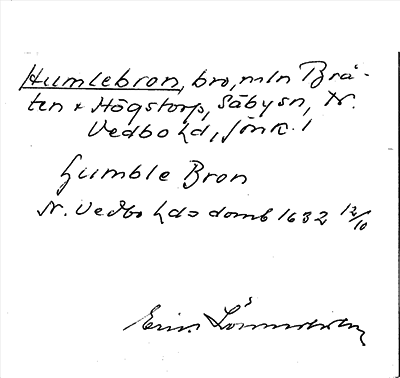 Humlebron, bro, mln Brå-
ten & Högstorp, Säbysn, N.
Vedbo hd, Jönk. l
Humble Bron
N. Vedbo hds domb 1632 12/10